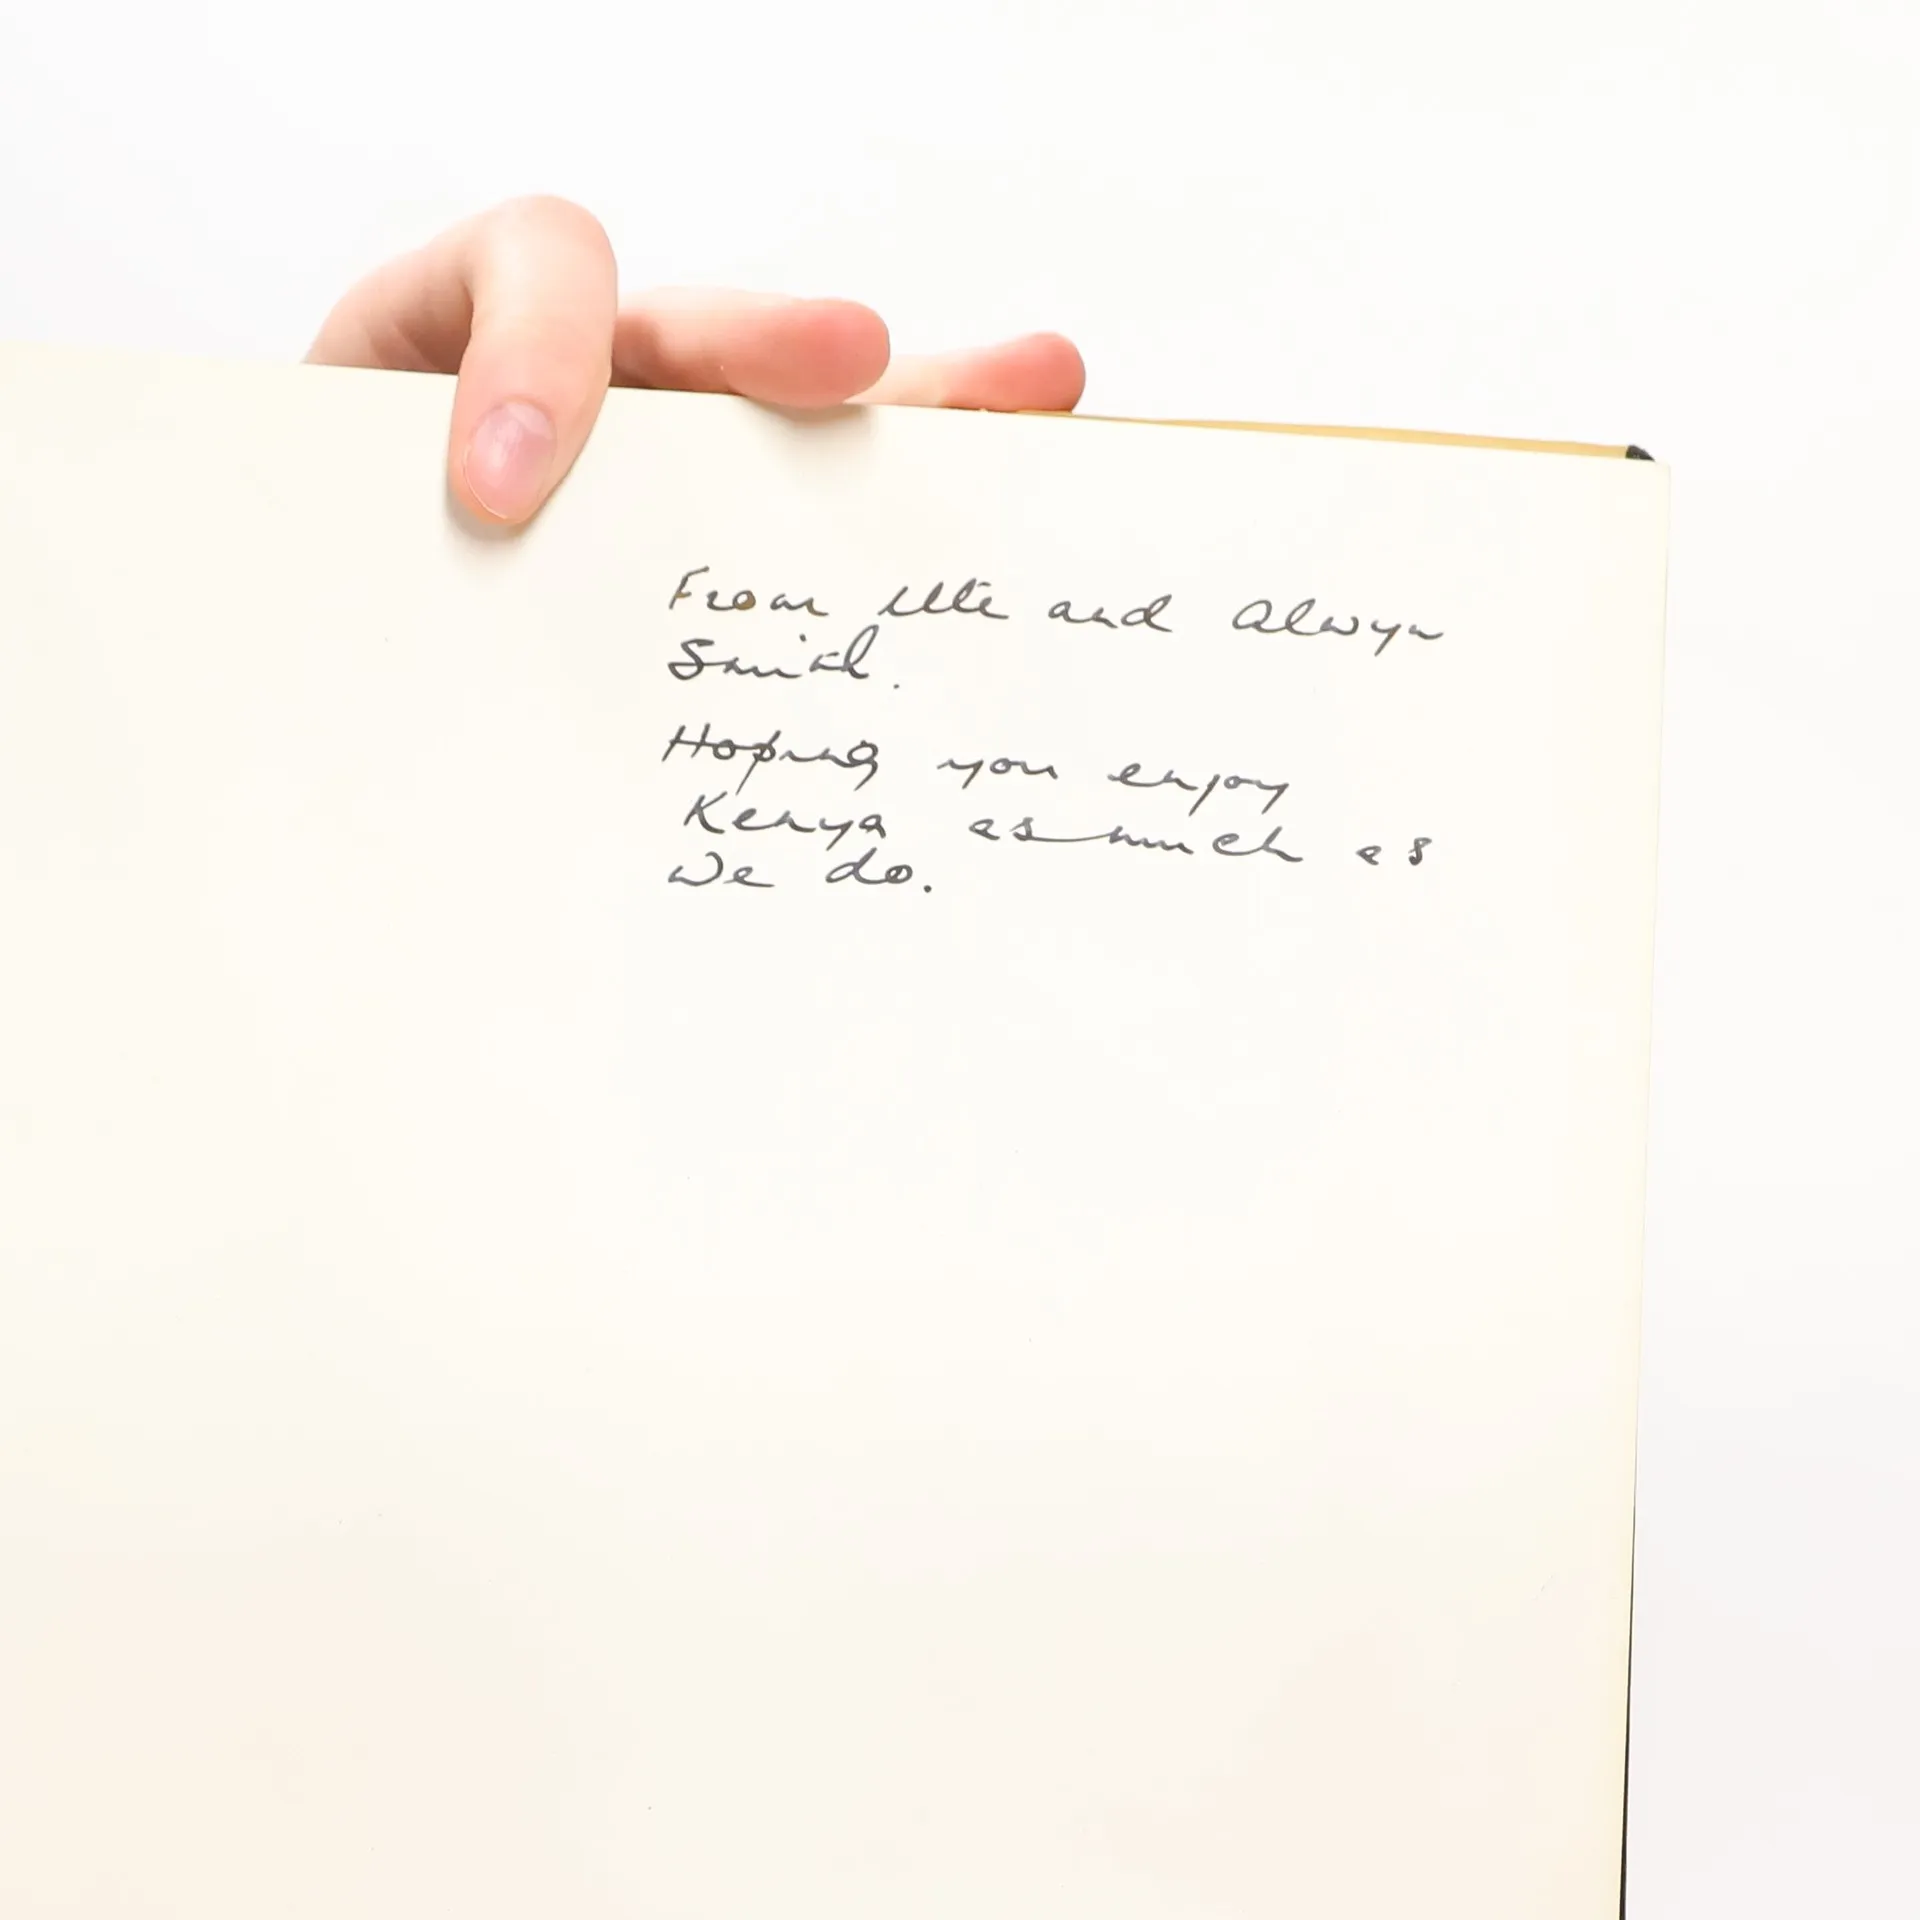 From Ute and Alwyn
Smith.
Hoping you enjoy
Kenya as much as
We do.